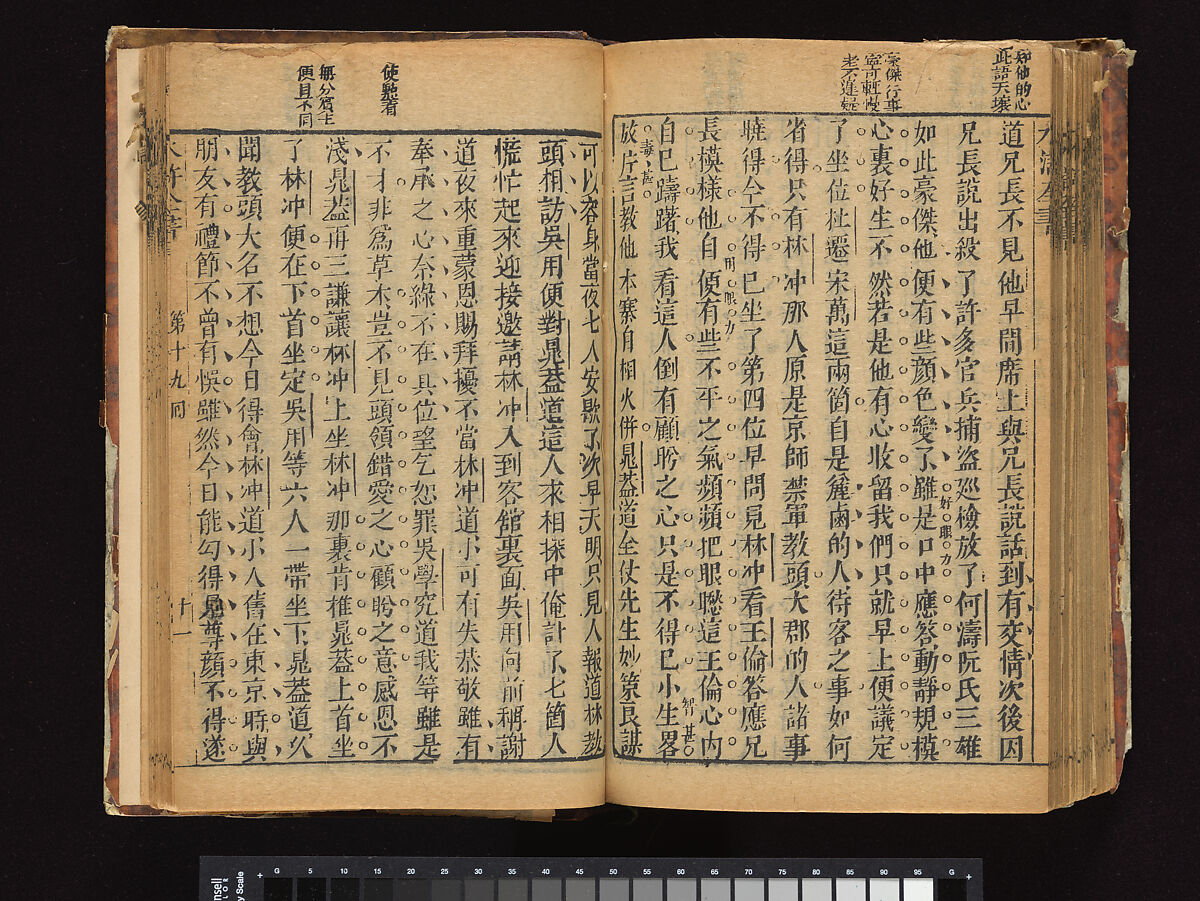 知他的心
此語天壤
豪傑行事
寧可輕慢
道兄長不見他早間席上與兄長說話到有交情次後因
兄長說出殺了許多官兵捕盜巡檢放了何濤阮氏三雄
好眼力
如此豪傑他便有些顏色變了雖是口中應答動靜規模
心裏好生不然若是他有心收留我們只就早上便議定
了坐位杜遷宋萬這兩箇自是麄鹵的人待客之事如何
省得只有林冲那人原是京師禁軍教頭大郡的人諸事
曉得今不得已坐了第四位早間見林冲看王倫答應兄
明眼力
長模樣他自便有些不平之氣頻頻把眼瞅這王倫心內
智甚
自已躊躇我看這人倒有顧盼之心只是不得已小生畧
毒甚
放片言教他本寨自相火併晁蓋道全仗先生妙策良謀
可以容身當夜七人安歇了次早天明只見人報道林教
頭相訪吳用便對晁蓋道這人來相探中俺計了七箇人
慌忙起來迎接邀請林冲入到客館裏面吳用向前稱謝
道夜來重蒙恩賜拜擾不當林冲道小可有失恭敬雖有
奉承之心奈緣不在其位望乞恕罪吳學究道我等雖是
使乖着
不才非爲草木豈不見頭領錯愛之心顧盼之意感恩不
無分賓主
便且不同
淺晁蓋再三謙讓林冲上坐林冲那裏肯推晁蓋上首坐
了林冲便在下首坐定吳用等六人一帶坐下晁蓋道久
聞教頭大名不想今日得會林冲道小人舊在東京時與
朋友有禮節不曾有悞雖然今日能勾得見尊顏不得遂
第十九回
十一
G 5 10 15 20 25 30 35 40 45 50 55 60 65 70 75 80 85 90 95 G